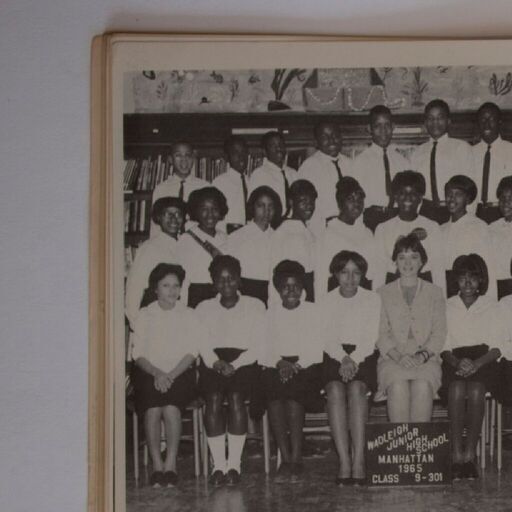 WADLEIGH
JUNIOR HIGH
SCHOOL
MANHATTAN
1965
CLASS 9-301